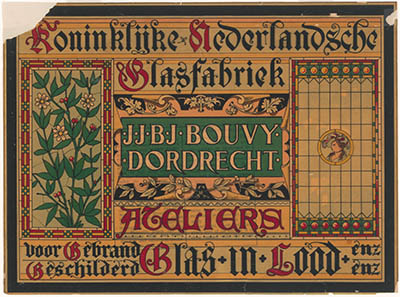 Koninklijke Nederlandsche
Glasfabriek
J.J.B.J. BOUVY
DORDRECHT
ATELIERS
voor Gebrand
Geschilderd
Glas in Lood
enz
enz